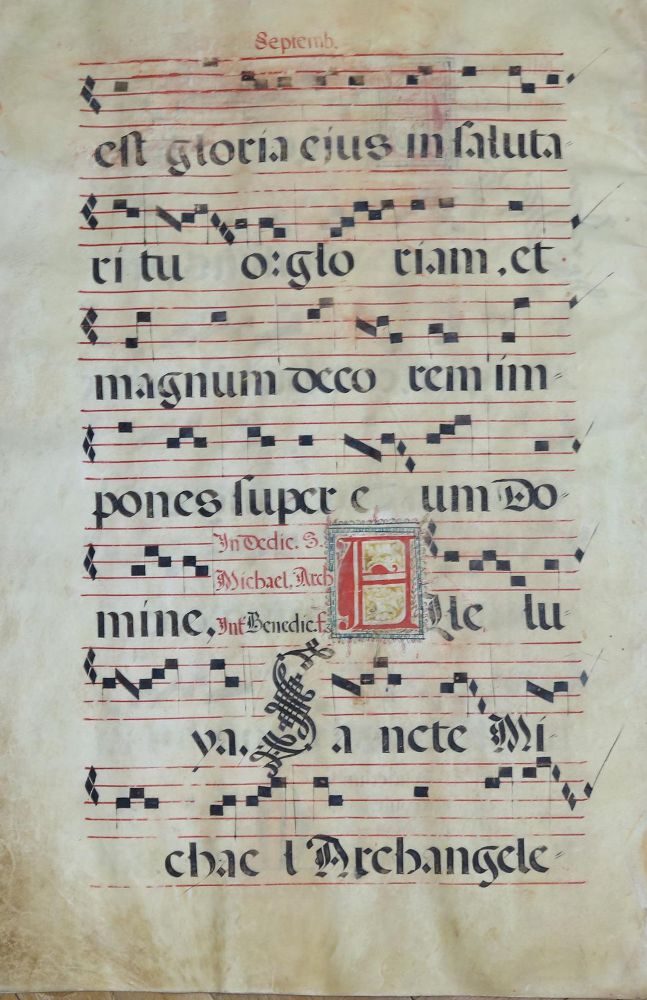 Septemb.
est gloria ejus in saluta
ri tu o: glo riam, et
magnum deco rem im=
pones super e um Do=
In Dedic. S.
Michael. Arch
mine, Int Benedic. f. Alle lu=
ya. Sancte Mi=
chael Archangele=